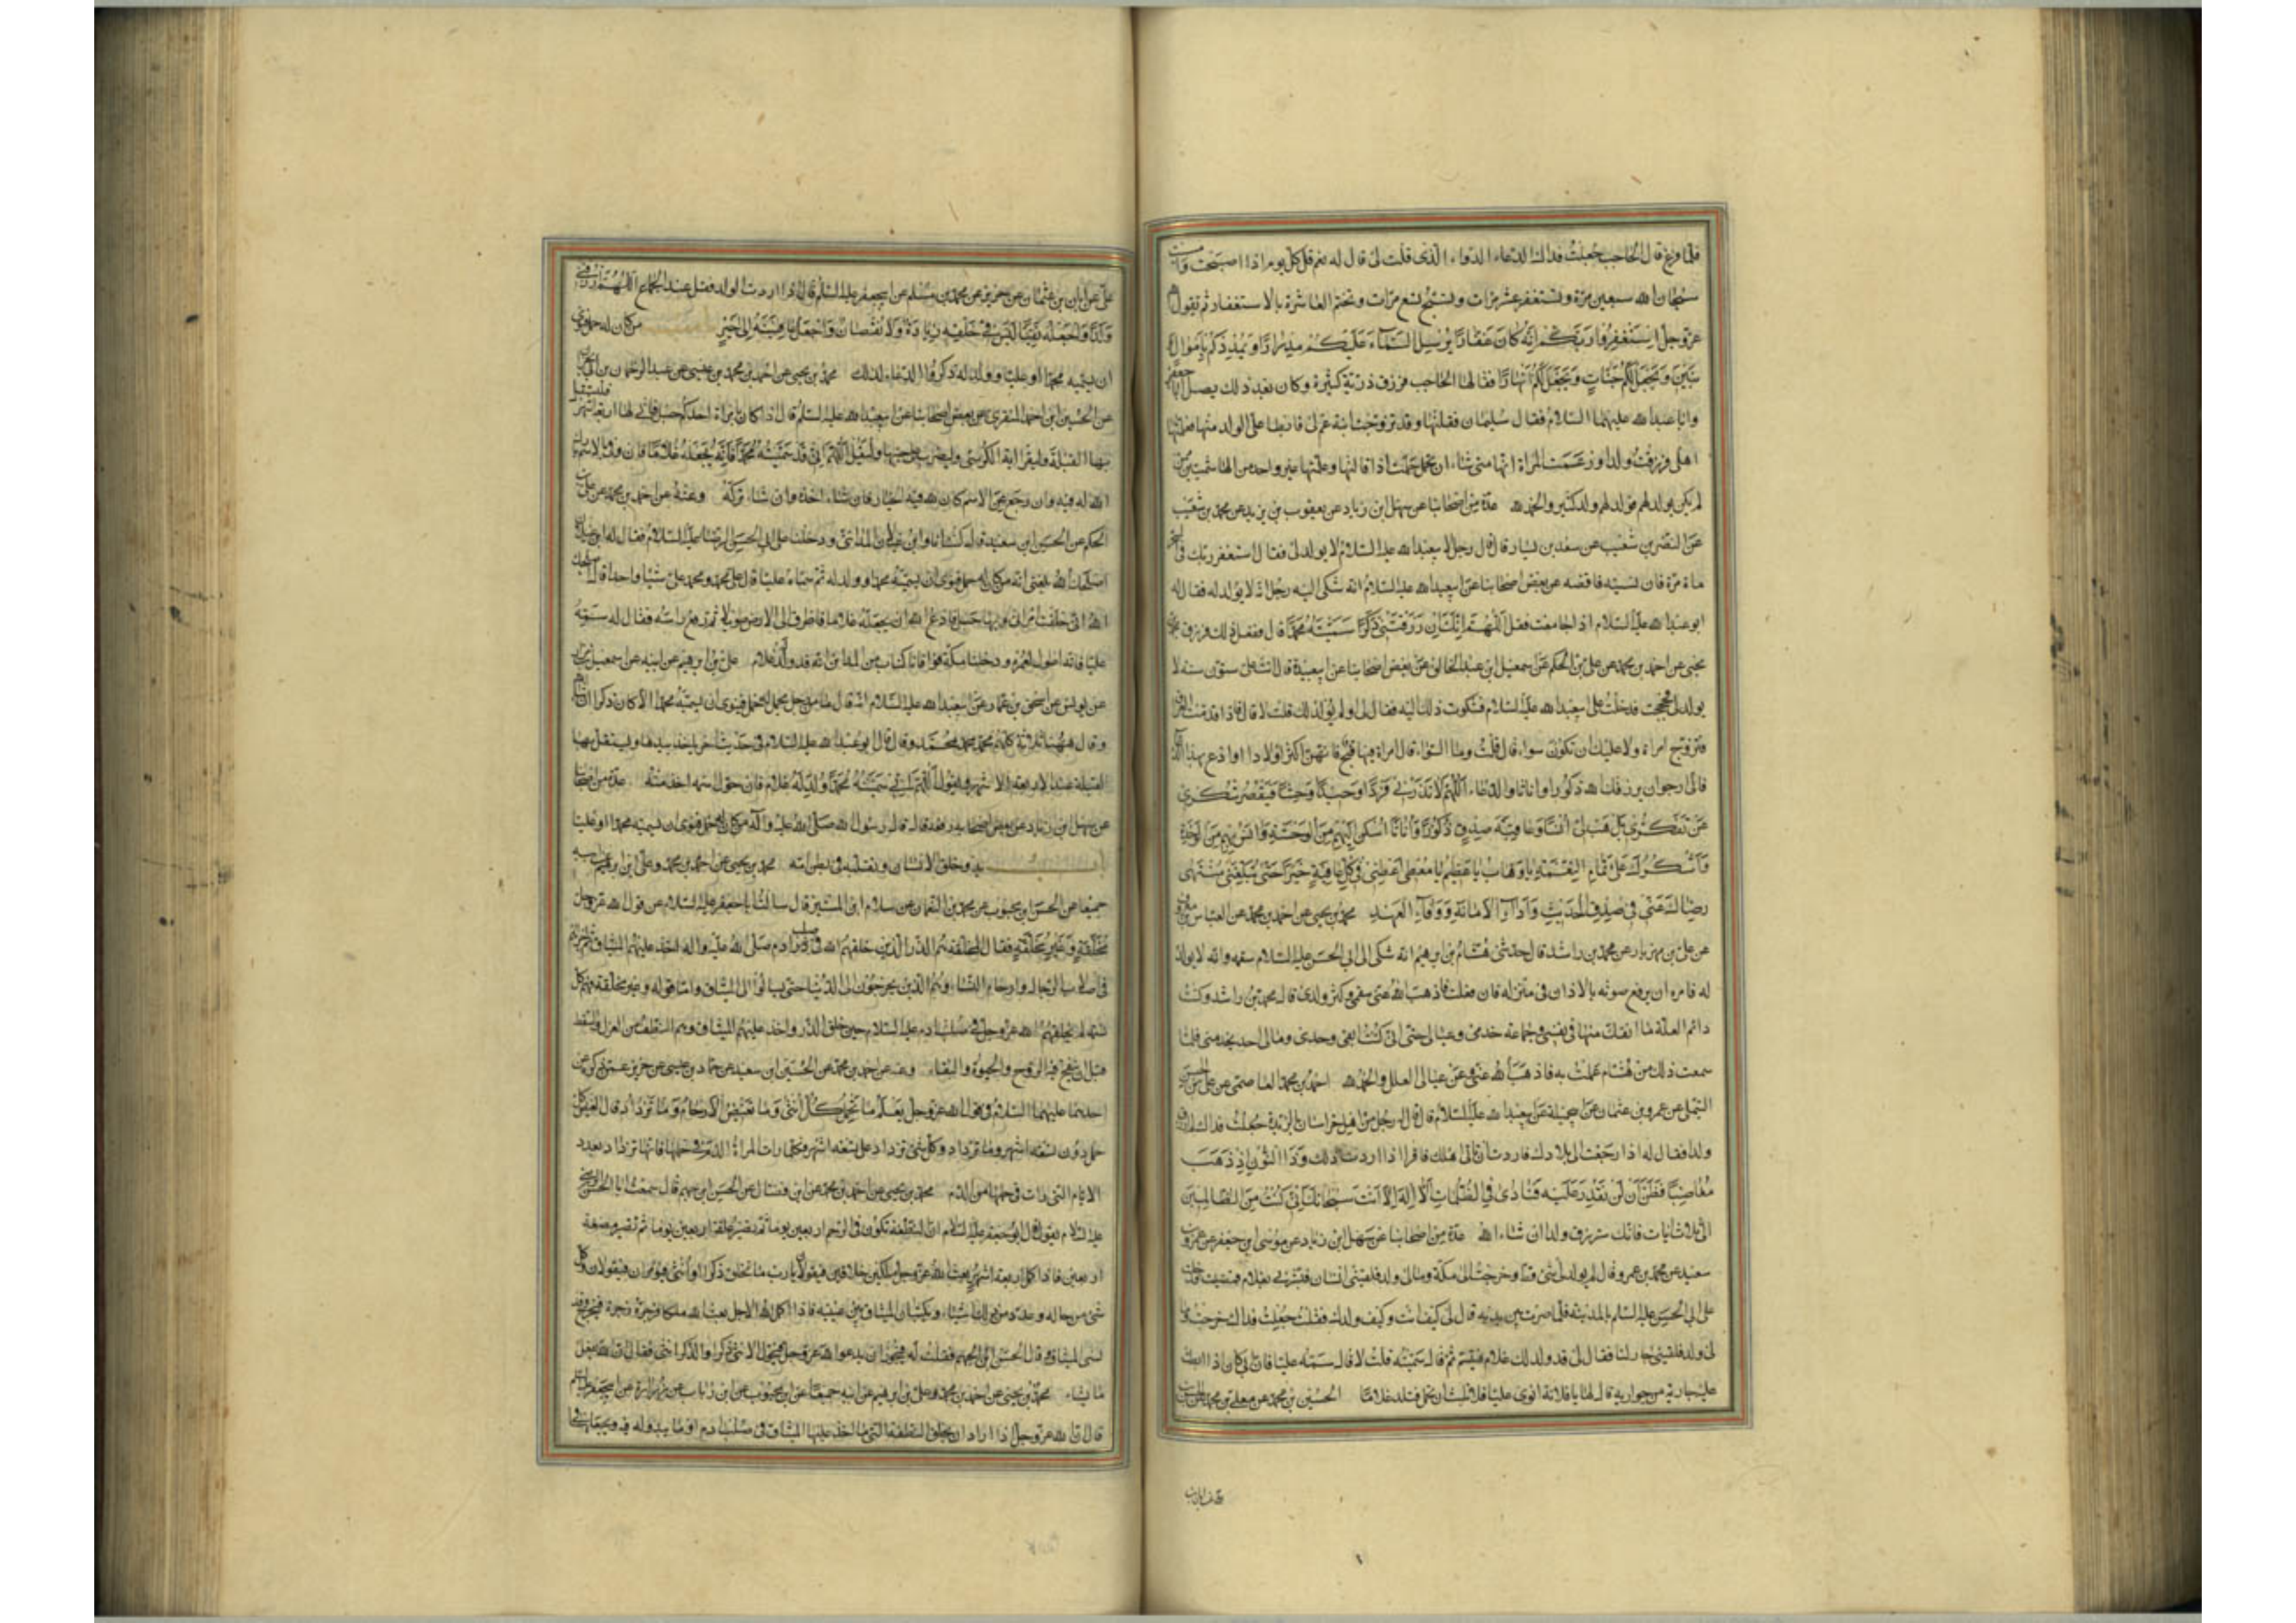 فلما فرغ قال الحاجب جعلت فداك الدعاء الدواء الذي قلت لي قال له نعم قل كل يوم اذا اصبحت وامسيت
سبحان الله سبعين مرة وتستغفر عشر مرات وتسبح تسع مرات وتختم العاشرة بالاستغفار ثم تقول
عز وجل اِسْتَغْفِرُوا رَبَّكُمْ اِنَّهُ كانَ غَفّارًا يُرْسِلِ السَّماءَ عَلَيْكُمْ مِدْرارًا وَيُمْدِدْكُمْ بِاَمْوالٍ
بَنينَ وَيَجْعَلْ لَكُمْ جَنّاتٍ وَيَجْعَلْ لَكُمْ اَنْهارًا فقالها الحاجب فرزق ذرية كثيرة وكان بعد ذلك يصل ابا جعفر
وابا عبد الله عليهما السلام فقال سليمان فقلتها وقد تزوجت ابنة عم لي فابطا على الولد منها وعلمتها
اهلي فرزقت ولدا وزعمت المراة انها متى تشاء ان تحمل حملت اذا قالتها وعلمتها غير واحد من الهاشميين ممن
لم يكن يولد لهم فولد لهم ولد كثير والحمد لله عدة من اصحابنا عن سهل ابن زياد عن يعقوب بن يزيد عن محمد بن شعيب
عن النضر بن شعيب عن سعد بن يسار قال قال رجل لابي عبد الله عليه السلام لا يولد لي فقال استغفر ربك في السحر
مائة مرة فان نسيته فاقضه عن بعض اصحابنا عن ابي عبد الله عليه السلام انه شكى اليه رجل انه لا يولد له فقال له
ابو عبد الله عليه السلام اذا جامعت فقل اَللّهُمَّ اِنَّكَ اِنْ رَزَقْتَني ذَكَرًا سَمَّيْتُهُ مُحَمَّدًا قال ففعل ذلك فرزق محمد بن
يحيى عن احمد بن محمد عن علي بن الحكم عن اسمعيل ابن عبد الخالق عن بعض اصحابنا عن ابي عبيدة قال اتت علي ستون سنة لا
يولد لي فحججت فدخلت على ابي عبد الله عليه السلام فشكوت ذلك اليه فقال لي او لم يولد لك قلت لا قال فاذا قدمت العراق
فتزوج امراة ولا عليك ان تكون سواء قال قلت وما السواء قال امراة فيها قبح فانهن اكثر اولادا وادع بهذا الدعاء
فاني ارجو ان يرزقك الله ذكورا واناثا والدعاء اَللّهُمَّ لا تَذَرْني فَرْدًا وَحيدًا وَحِشًا فَيَقْصُرَ شُكْري
عَنْ تَفَكُّري بَلْ هَبْ لي اُنْسًا وَعاقِبَةَ صِدْقٍ ذُكُورًا وَاِناثًا اَسْكُنُ اِلَيْهِمْ مِنَ الْوَحْشَةِ وَآنَسُ بِهِمْ مِنَ الْوَحْدَةِ
وَاَشْكُرُكَ عَلى تَمامِ النِّعْمَةِ يا وَهّابُ يا عَظيمُ يا مُعْطي اَعْطِني في كُلِّ عافِيَةٍ خَيْرًا حَتّى تُبَلِّغَني مُنْتَهى
رِضاكَ عَنّي في صِدْقِ الْحَديثِ وَاَداءِ الْاَمانَةِ وَوَفاءِ الْعَهْدِ محمد بن يحيى عن احمد بن محمد عن العباس بن معروف
عن علي بن مهزيار عن محمد بن راشد قال حدثني هشام بن ابرهيم انه شكى الى ابي الحسن عليه السلام سقمه وانه لا يولد
له فامره ان يرفع صوته بالاذان في منزله قال ففعلت فاذهب الله عني سقمي وكثر ولدي قال محمد بن راشد وكنت
دائم العلة ما انفك منها في نفسي وجماعة خدمي وعيالي حتى اني كنت ابقى وحدي ومالي احد يخدمني فلما
سمعت ذلك من هشام عملت به فاذهب الله عني وعن عيالي العلل والحمد لله احمد بن محمد العاصمي عن علي بن الحسن
التيملي عن عمرو بن عثمان عن ابي جميلة عن ابي عبد الله عليه السلام قال قال رجل من اهل خراسان بالربذة جعلت فداك لم ارزق
ولدا فقال له اذا رجعت الى بلادك فاردت ان تاتي اهلك فاقرا اذا اردت ذلك وَذَا النُّونِ اِذْ ذَهَبَ
مُغاضِبًا فَظَنَّ اَنْ لَنْ نَقْدِرَ عَلَيْهِ فَنادى فِي الظُّلُماتِ اَنْ لا اِلهَ اِلّا اَنْتَ سُبْحانَكَ اِنّي كُنْتُ مِنَ الظّالِمينَ
الى ثلاث ايات فانك سترزق ولدا ان شاء الله عدة من اصحابنا عن سهل ابن زياد عن موسى ابن جعفر عن عمرو بن
سعيد عن محمد بن عمرو قال لم يولد لي شئ قط وخرجت الى مكة ومالي ولد فلقيني انسان فبشرني بغلام فمضيت ودخلت
على ابي الحسن عليه السلام بالمدينة فلما صرت بين يديه قال لي كيف انت وكيف ولدك فقلت جعلت فداك خرجت وما
لي ولد فلقيني جار لنا فقال لي قد ولد لك غلام فتبسم ثم قال سميته قلت لا قال سمه عليا فان ابي كان اذا ابطات
عليه جارية من جواريه قال لها يا فلانة انوي عليا فلا تلبث ان تحمل فتلد غلاما الحسين بن محمد عن معلى بن محمد عن الحسن بن
علي عن ابان
علي عن ابان بن عثمان عن حريز عن محمد بن مسلم عن ابي جعفر عليه السلام قال اذا اردت الولد فقل عند الجماع اَللّهُمَّ ارْزُقْني
وَلَدًا وَاجْعَلْهُ تَقِيًّا لَيْسَ في خَلْقِهِ زِيادَةٌ وَلا نُقْصانٌ وَاجْعَلْ عاقِبَتَهُ اِلى خَيْرٍ من كان له حمل فنوى
ان يسميه محمدا او عليا وولد له ذكر والدعاء لذلك محمد بن يحيى عن احمد بن محمد بن عيسى عن عبد الرحمن بن ابي نجران
عن الحسين ابن احمد المنقري عن بعض اصحابنا عن ابي عبد الله عليه السلام قال اذا كان بامراة احدكم حبل فاتى لها اربعة اشهر فليستقبل
بها القبلة وليقرا اية الكرسي وليضرب على جنبها وليقل اَللّهُمَّ اِنّي قَدْ سَمَّيْتُهُ مُحَمَّدًا فانه يجعله غلاما فان وفى بالاسم بارك
الله له فيه وان رجع عن الاسم كان لله فيه الخيار فان شاء اخذه وان شاء تركه وعنه عن احمد بن محمد عن علي بن
الحكم عن الحسين ابن سعيد قال كنت انا وابن غيلان المدائني ودخلنا على ابي الحسن الرضا عليه السلام فقال له ابن غيلان
اصلحك الله بلغني انه من كان له حمل فنوى ان يسميه محمدا وولد له ثم سماه عليا قال علي محمد ومحمد علي شيئا واحدا قال اصلحك
الله اني خلفت امراتي وبها حبل فادع الله ان يجعله غلاما فاطرق الى الارض طويلا ثم رفع راسه فقال له سمه
عليا فانه اطول لعمره ودخلنا مكة فوافانا كتاب من المداين انه قد ولد له غلام علي بن ابرهيم عن ابيه عن اسمعيل بن مرار
عن يونس عن اسحق بن عمار عن ابي عبد الله عليه السلام انه قال ما من رجل يحمل له حمل فينوي ان يسميه محمدا الا كان ذكرا ان شاء الله
وقال ههنا ثلاثة كلهم محمد محمد محمد وقال قال ابو عبد الله عليه السلام في حديث اخر ياخذ بيدها ويستقبل بها
القبلة عند الاربعة الاشهر ويقول اَللّهُمَّ اِنّي سَمَّيْتُهُ مُحَمَّدًا ولد له غلام فان حول اسمه اخذ منه عدة من اصحابنا
عن سهل ابن زياد عن بعض اصحابه رفعه قال قال رسول الله صلى الله عليه وآله من كان له حمل فنوى ان يسميه محمدا او عليا
بدو خلق الانسان وتقلبه في بطن امه محمد بن يحيى عن احمد بن محمد وعلي ابن ابرهيم عن ابيه
جميعا عن الحسن ابن محبوب عن محمد بن النعمان عن سلام ابن المستنير قال سالت ابا جعفر عليه السلام عن قول الله عز وجل
مُخَلَّقَةٍ وَغَيْرِ مُخَلَّقَةٍ فقال المخلقة هم الذر الذين خلقهم الله في صلب ادم صلى الله عليه واله اخذ عليهم الميثاق ثم اجراهم
في اصلاب الرجال وارحام النساء وهم الذين يخرجون الى الدنيا حتى يسالوا الى الميثاق واما قوله وغير مخلقة فهم كل
نسمة لم يخلقهم الله عز وجل في صلب ادم عليه السلام حين خلق الذر واخذ عليهم الميثاق وهم النطف من العزل والسقط
قبل ان ينفخ فيه الروح والحيوة والبقاء وعنه عن احمد بن محمد عن الحسين ابن سعيد عن حماد بن عيسى عن حريز عمن ذكره عن
احدهما عليهما السلام في قول الله عز وجل يَعْلَمُ ما تَحْمِلُ كُلُّ اُنْثى وَما تَغيضُ الْاَرْحامُ وَما تَزْدادُ قال الغيض كل
حمل دون تسعة اشهر وما تزداد وكل شئ تزداد على تسعة اشهر فكلما رات المراة الدم في حملها فانها تزداد بعدد
الايام التي رات في حملها من الدم محمد بن يحيى عن احمد بن محمد عن ابن فضال عن الحسن ابن جهم قال سمعت ابا الحسن الرضا
عليه السلام يقول قال ابو جعفر عليه السلام ان النطفة تكون في الرحم اربعين يوما ثم تصير علقة اربعين يوما ثم تصير مضغة
اربعين فاذا كمل اربعة اشهر بعث الله عز وجل ملكين خلاقين فيقولان يا رب ما تخلق ذكرا او انثى فيؤمران فيقولان
شئ من حاله وعدد من ذلك شيئا ويكتبان الميثاق بين عينيه فاذا اكمل الله الاجل بعث الله ملكا فزجره زجرة فيخرج وقد
نسي الميثاق قال الحسن ابن الجهم فقلت له فيجوز ان يدعو الله عز وجل فيحول الانثى ذكرا والذكر انثى فقال ان الله يفعل
ما يشاء محمد بن يحيى عن احمد بن محمد وعلي بن ابرهيم عن ابيه جميعا عن ابن محبوب عن ابن رئاب عن زرارة عن ابي جعفر عليه السلام
قال ان الله عز وجل اذا اراد ان يخلق النطفة التي مما اخذ عليها الميثاق في صلب ادم او ما يبدو له فيه ويجعلها في